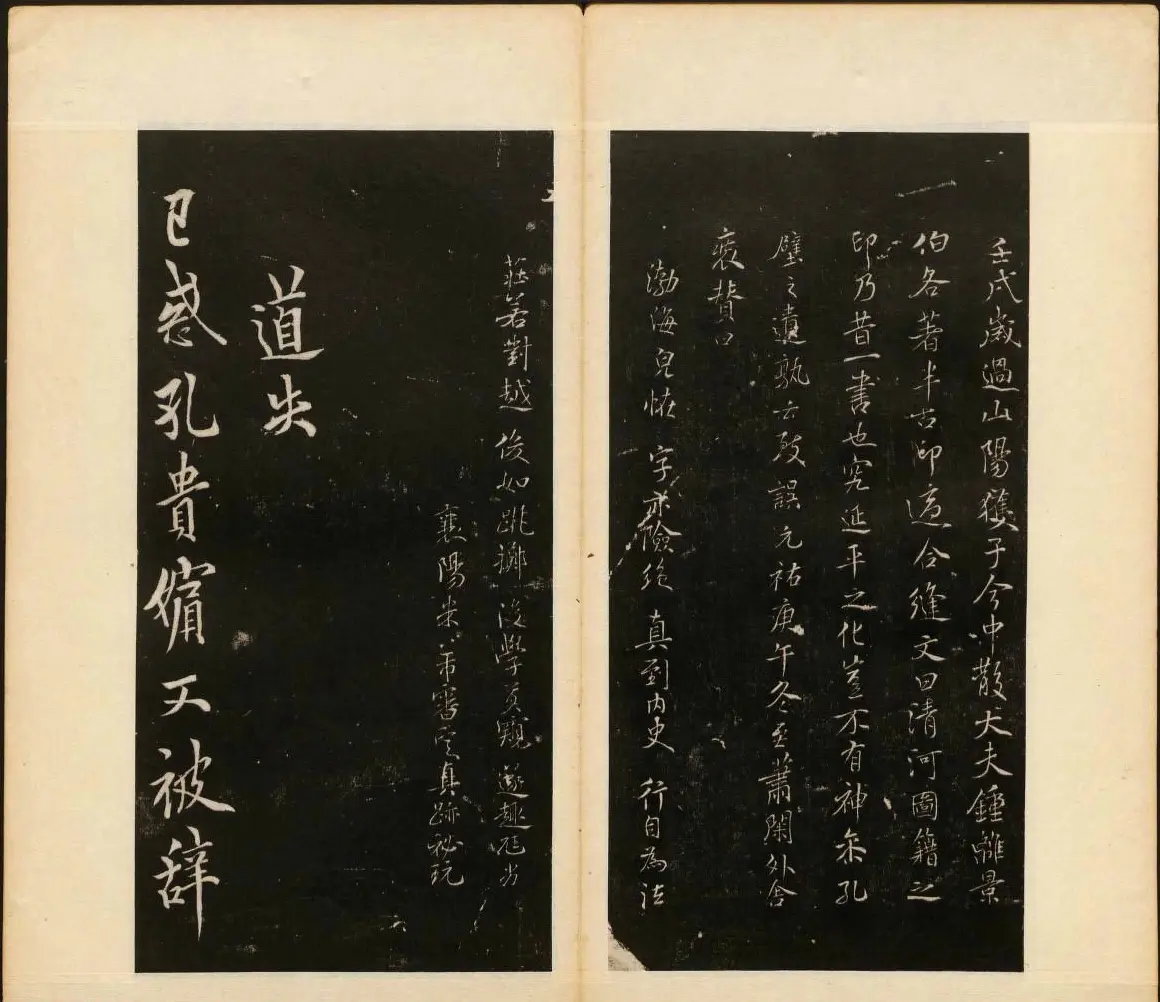 壬戌歲過山陽獲子今中散大夫鍾離景
伯各著半古印適合縫文曰清河圖籍之
印乃昔一書也究延平之化豈不有神尔孔
壁之遺孰云致誤元祐庚午冬至蕭閑外舍
裦贊曰
渤海兒怪 字亦險絶 真到內史 行自為法
莊若對越 俊如跳擲 後學莫窺 遂趣
襄陽米 芾審定真跡秘玩
道失
已惑孔貴嬪又被辞